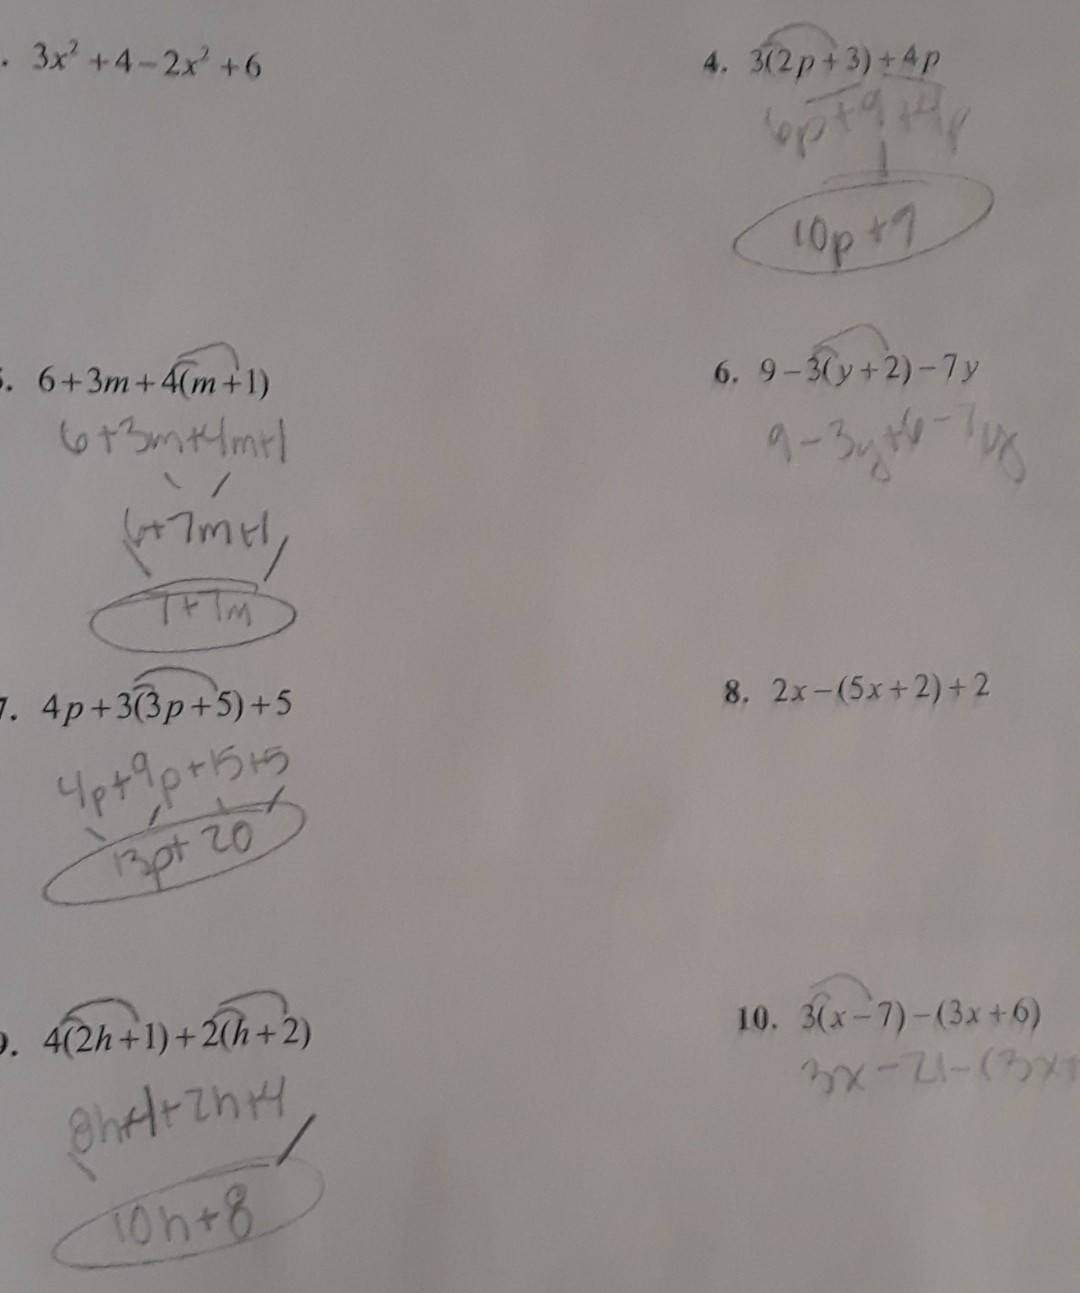 . 3x² + 4 – 2x² + 6
4. 3(2p + 3) + 4p
6p + 9 + 4p
10p + 9
5. 6 + 3m + 4(m + 1)
6 + 3m + 4m + 1
6 + 7m + 1
7 + 7m
6. 9 – 3(y + 2) – 7y
9 – 3y + 6 – 7y
7. 4p + 3(3p + 5) + 5
4p + 9p + 15 + 5
13p + 20
8. 2x – (5x + 2) + 2
9. 4(2h + 1) + 2(h + 2)
8h + + 2h + 4
10h + 8
10. 3(x – 7) – (3x + 6)
3x – 21 – (3x +